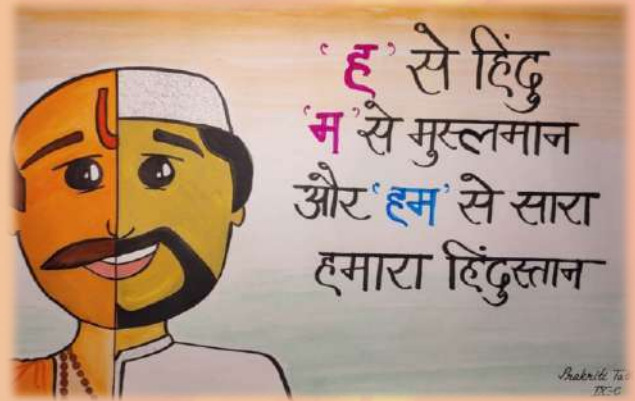 'ह' से हिंदु
'म' से मुस्लमान
और 'हम' से सारा
हमारा हिंदुस्तान
Prakriti
IX-C